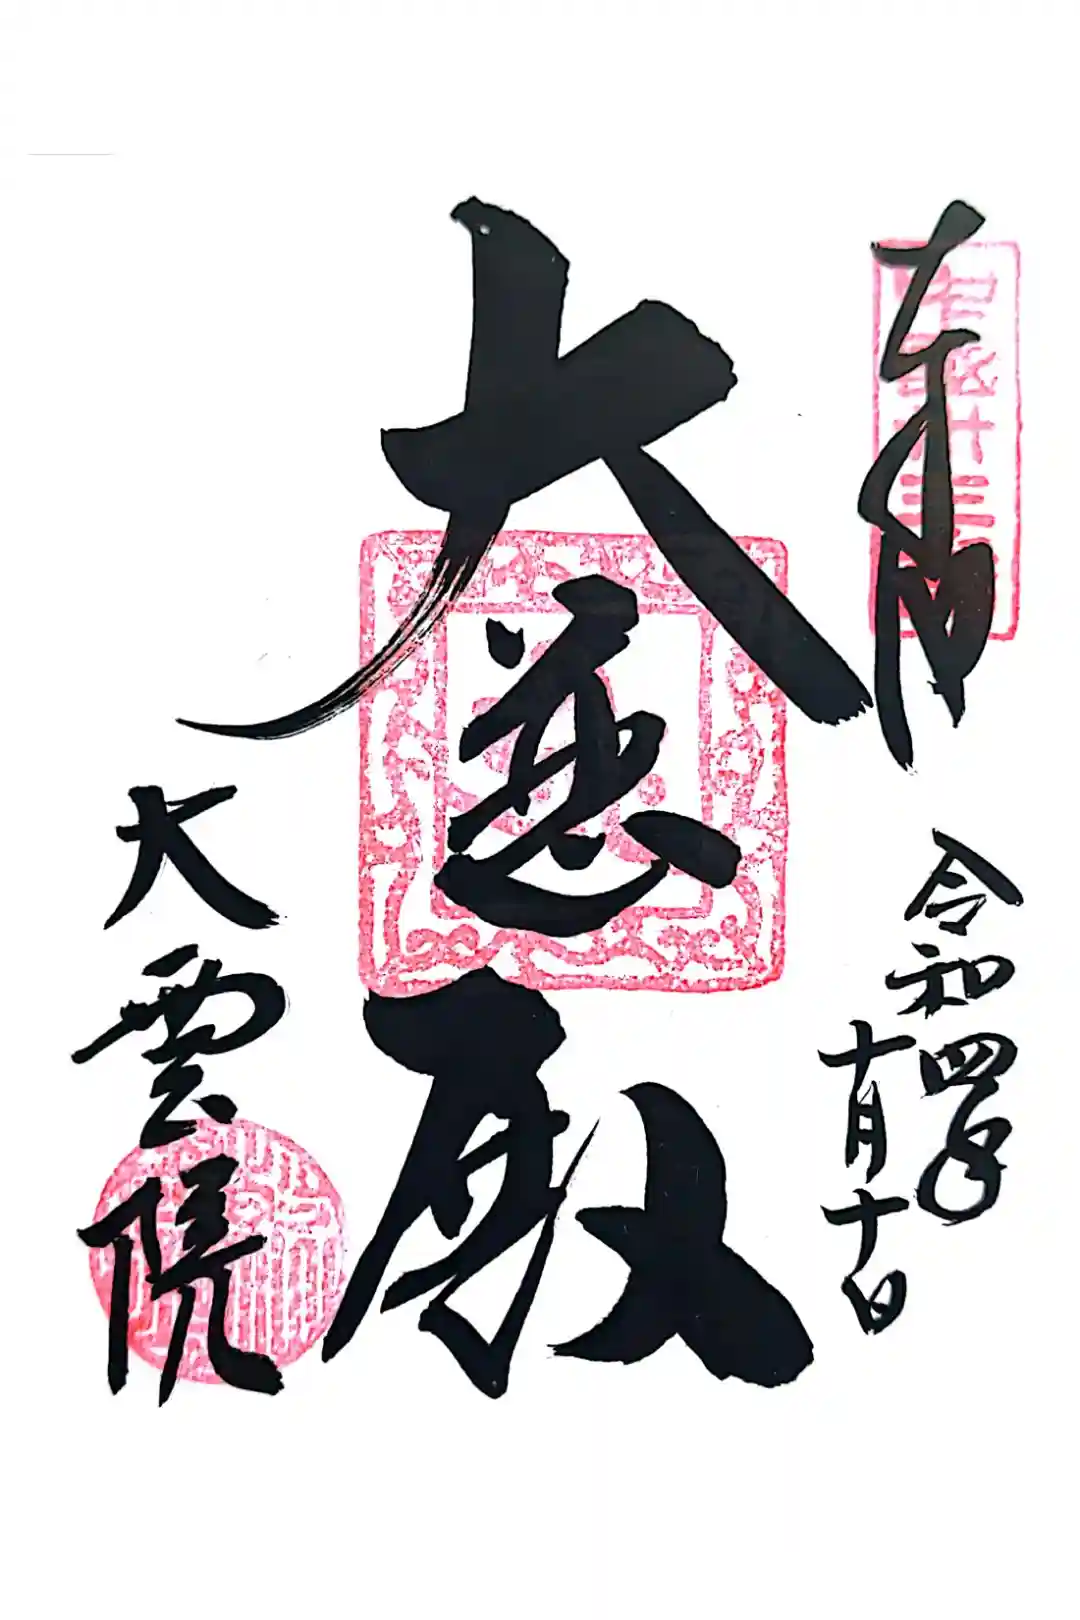 奉拝
令和四年
十月十日
大悲殿
大雲院